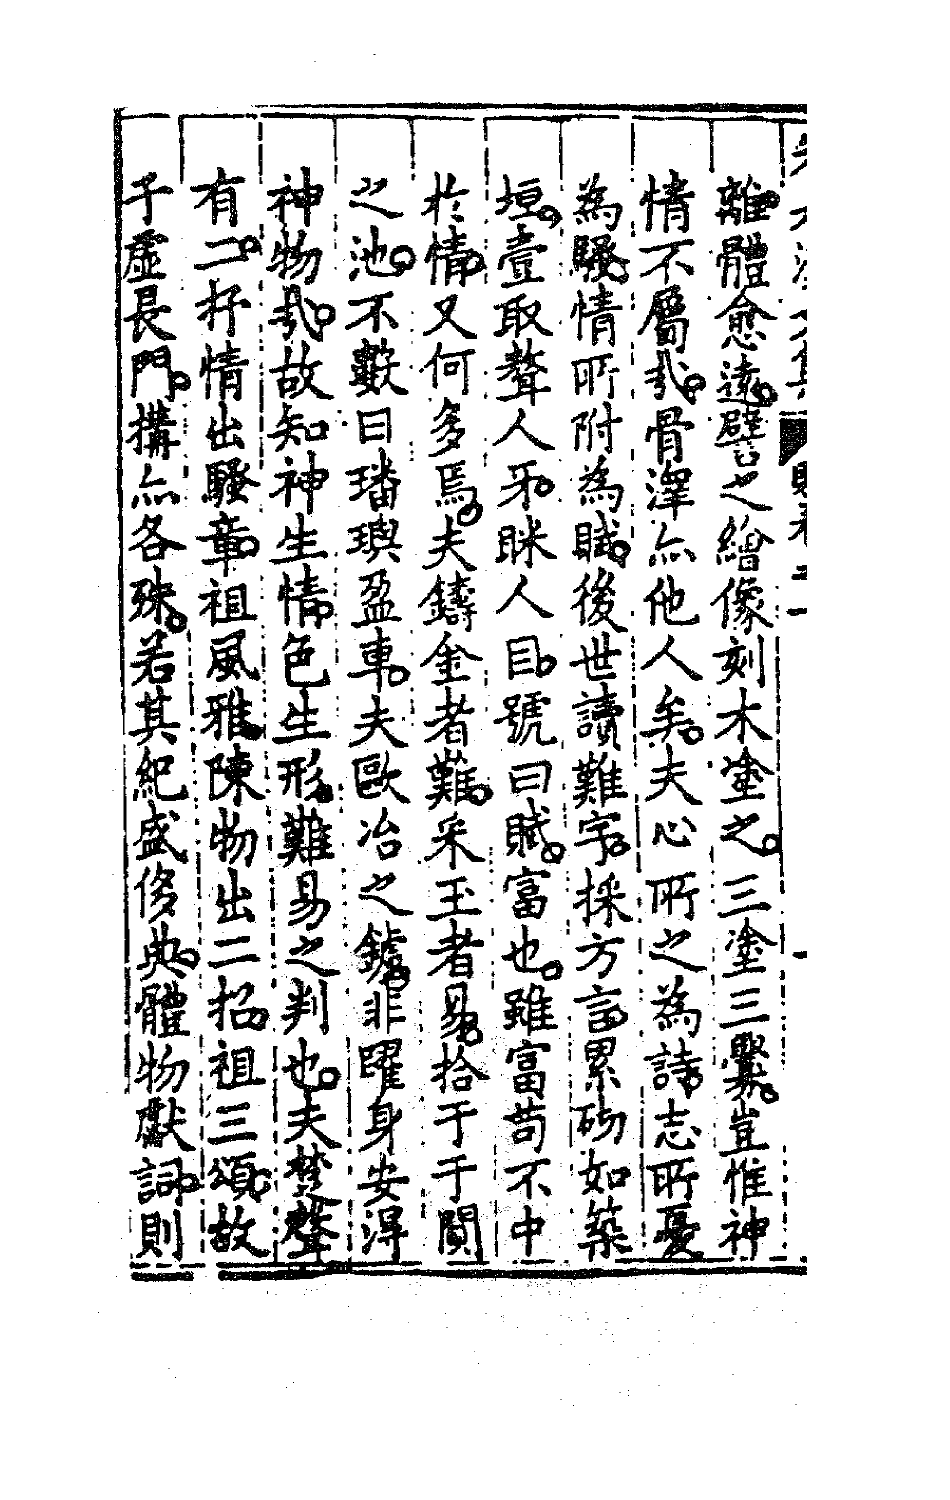 離體愈遠譬之繪像刻木塗之三塗三釁豈惟神
情不屬㢤骨澤亦他人矣夫心所之為詩志所憂
為騷情所附為賦後世讀難字採方言累砌如築
垣壹取聱人牙眯人目號曰賦富也雖富苟不中
於情又何多焉夫鑄金者難采玉者易拾于于闐
之池不數日璠璵盈車夫歐冶之鑪非躍身安得
神物㢤故知神生情色生形難易之判也夫楚聲
有二抒情出騷章祖風雅陳物出二招祖三頌故
子虛長門搆亦各殊若其紀盛侈典體物獻詞則